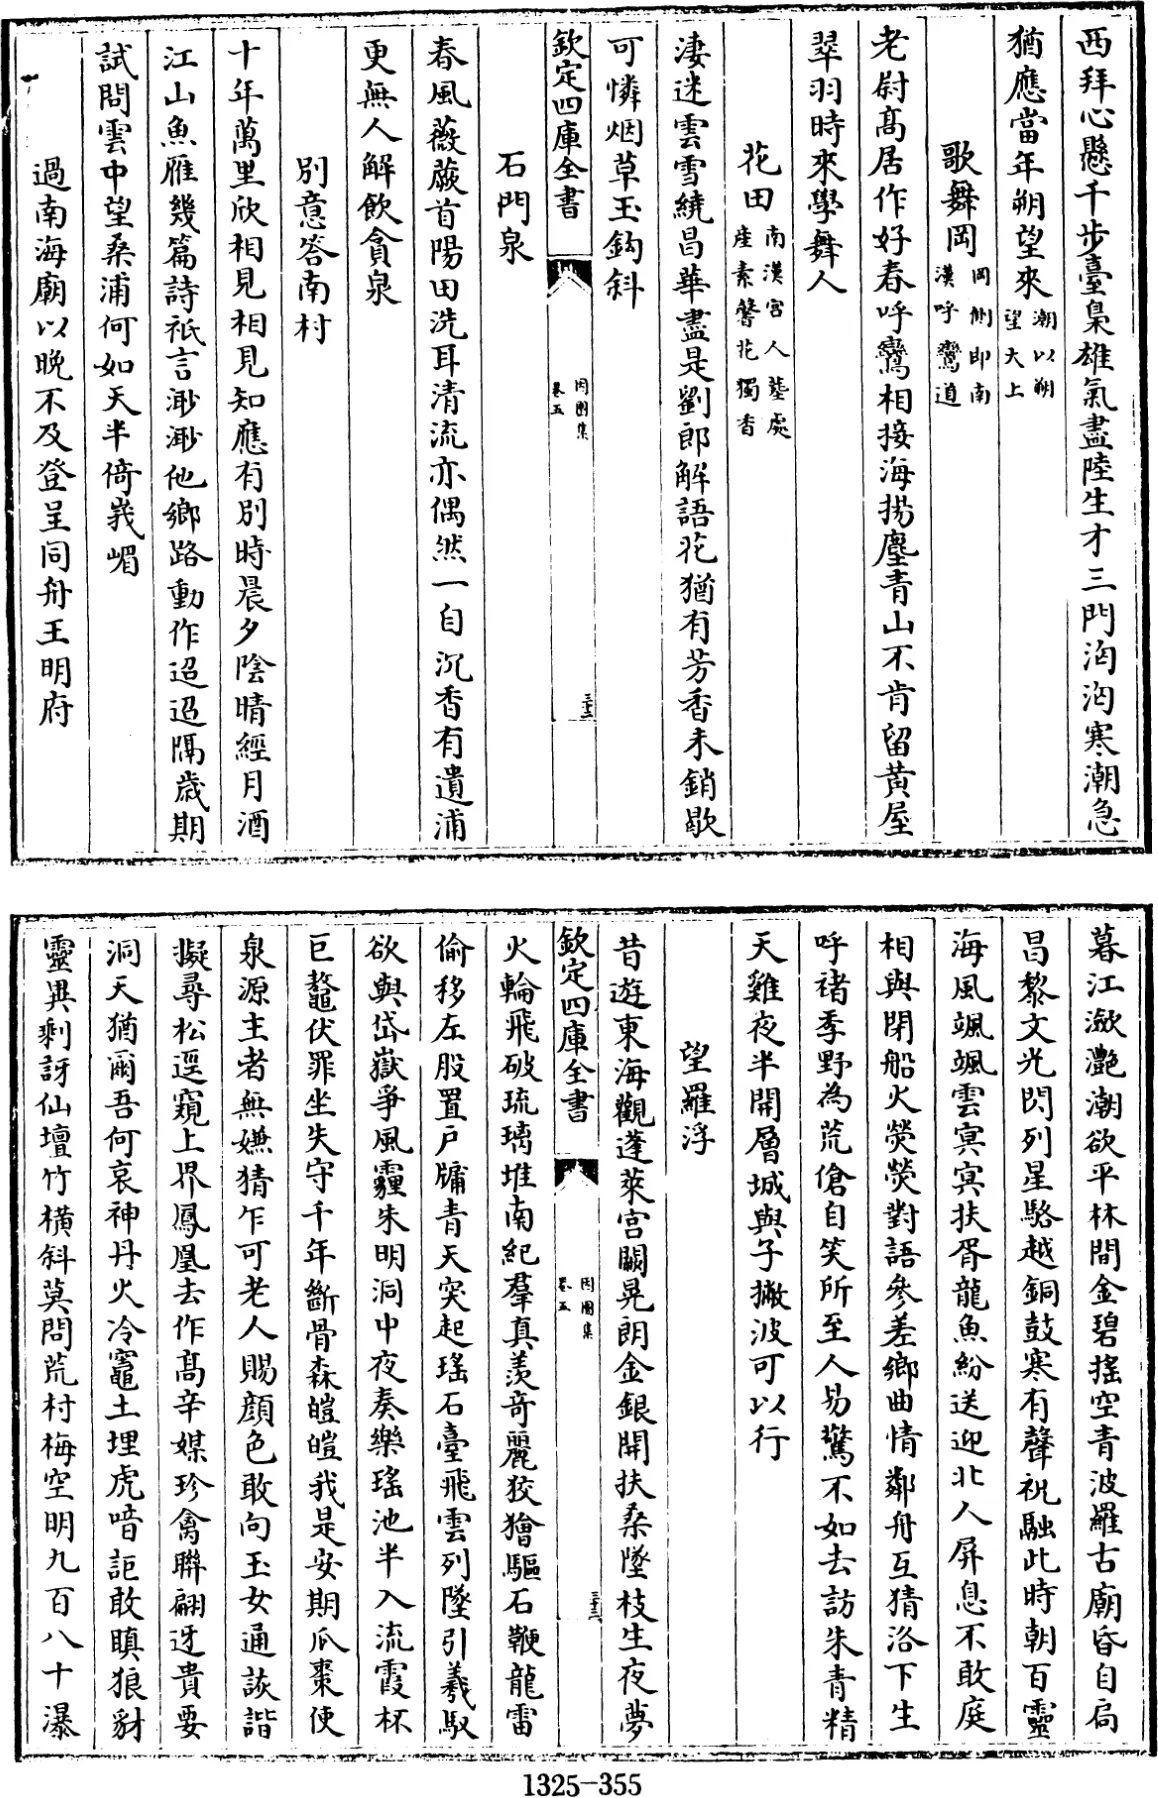 西拜心懸千步臺梟雄氣盡陸生才三門洶洶寒潮急
猶應當年朔望來潮以朔望大上
歌舞岡岡側即南漢呼鸞道
老尉高居作好春呼鸞相接海揚塵青山不肯留黃屋
翠羽時來學舞人
花田南漢宮人塟處産素馨花獨香
淒迷雲雪繞昌華盡是劉郎解語花猶有芳香未銷歇
可憐烟草玉鈎斜
欽定四庫全書
因園集
卷五
三十二
石門泉
春風薇蕨首陽田洗耳清流亦偶然一自沉香有遺浦
更無人解飲貪泉
別意答南村
十年萬里欣相見相見知應有別時晨夕陰晴經月酒
江山魚雁幾篇詩祇言渺渺他鄉路動作迢迢隔歲期
試問雲中望桑浦何如天半倚峩嵋
過南海廟以晚不及登呈同舟王明府
暮江瀲灩潮欲平林間金碧搖空青波羅古廟昏自扃
昌黎文光閃列星駱越銅鼓寒有聲祝融此時朝百靈
海風颯颯雲冥冥扶胥龍魚紛送迎北人屏息不敢庭
相與閉船火熒熒對語參差鄉曲情鄰舟互猜洛下生
呼褚季野為荒傖自笑所至人易驚不如去訪朱青精
天雞夜半開層城與子撇波可以行
望羅浮
昔遊東海觀蓬萊宮闕晃朗金銀開扶桑墜枝生夜夢
欽定四庫全書
因園集
卷五
三十三
火輪飛破琉璃堆南紀羣真羨奇麗狡獪驅石鞭龍雷
偷移左股置戶牖青天突起瑤石臺飛雲列墜引羲馭
欲與岱嶽爭風霾朱明洞中夜奏樂瑤池半入流霞杯
巨鼇伏罪坐失守千年斷骨森皚皚我是安期瓜棗使
泉源主者無嫌猜乍可老人賜顏色敢向玉女通詼諧
擬尋松逕窺上界鳳凰去作高辛媒珍禽聯翩迓貴要
洞天猶爾吾何哀神丹火冷竈土埋虎喑詎敢瞋狼豺
靈異剩訝仙壇竹橫斜莫問荒村梅空明九百八十瀑
1325-355